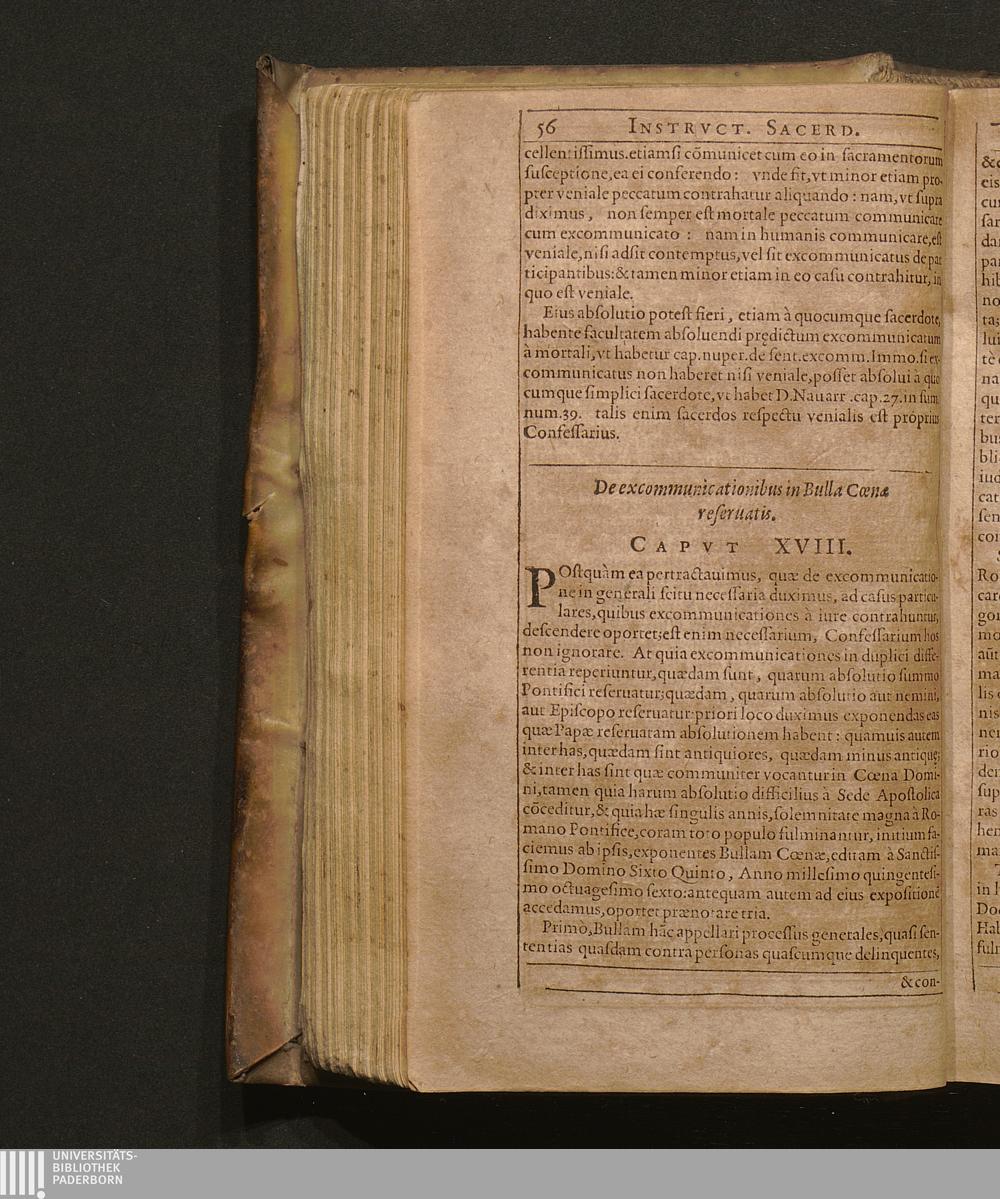 56 INSTRVCT. SACERD.
cellentissimus.etiamsi cõmunicet cum eo in sacramentorum
susceptione,ea ei conferendo: vnde fit,vt minor etiam pro-
pter veniale peccatum contrahatur aliquando: nam,vt supra
diximus, non semper est mortale peccatum communicare
cum excommunicato: nam in humanis communicare,est
veniale,nisi adsit contemptus,vel sit excommunicatus de par
ticipantibus:& tamen minor etiam in eo casu contrahitur, in
quo est veniale.
Eius absolutio potest fieri, etiam à quocumque sacerdote,
habente facultatem absoluendi prędictum excommunicatum
à mortali,vt habetur cap.nuper.de sent.excomm.Immo.si ex-
communicatus non haberet nisi veniale,posset absolui à quo
cumque simplici sacerdote,vt habet D.Nauarr.cap.27.in sum
num.39. talis enim sacerdos respectu venialis est proprius
Confessarius.
De excommunicationibus in Bulla Cœnæ
reseruatis.
CAPVT XVIII.
POstquàm ea pertractauimus, quæ de excommunicatio-
ne in generali scitu necessaria duximus, ad casus particu-
lares,quibus excommunicationes à iure contrahuntur,
descendere oportet;est enim necessarium, Confessarium hos
non ignorare. At quia excommunicationes in duplici diffe-
rentia reperiuntur,quædam sunt, quarum absolutio summo
Pontifici reseruatur;quædam, quarum absolutio aut nemini,
aut Episcopo reseruatur:priori loco duximus exponendas eas
quæ Papæ reseruatam absolutionem habent: quamuis autem
inter has,quædam sint antiquiores, quædam minus antiquę;
& inter has sint quæ communiter vocantur in Cœna Domi-
ni,tamen quia harum absolutio difficilius à Sede Apostolica
cõceditur,& quia hæ singulis annis,solemnitate magna à Ro-
mano Pontifice,coram toto populo fulminantur, initium fa-
ciemus ab ipsis,exponentes Bullam Cœnæ,editam à Sanctis-
simo Domino Sixto Quinto, Anno millesimo quingentesi-
mo octuagesimo sexto:antequam autem ad eius expositionẽ
accedamus,oportet prænotare tria.
Primò,Bullam hãc appellari processus generales,quasi sen-
tentias quasdam contra personas quascumque delinquentes,
& con-
UNIVERSITÄTS-
BIBLIOTHEK
PADERBORN